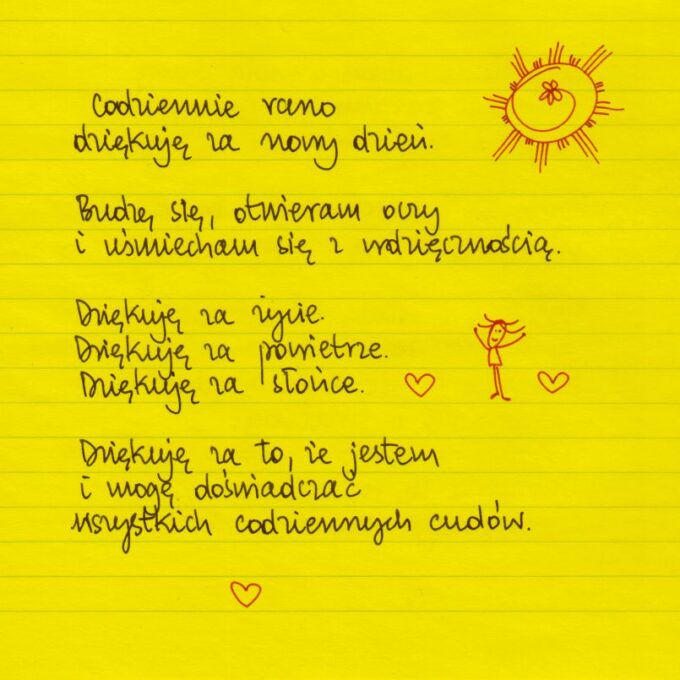 Codziennie rano
dziękuję za nowy dzień.
Budzę się, otwieram oczy
i uśmiecham się z wdzięcznością.
Dziękuję za życie.
Dziękuję za powietrze.
Dziękuję za słońce.
Dziękuję za to, że jestem
i mogę doświadczać
wszystkich codziennych cudów.